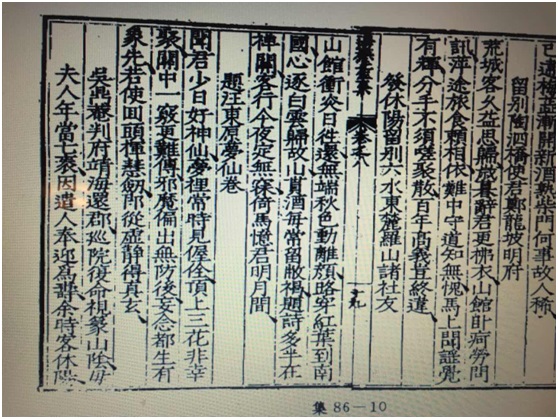 漸開新酒熟柴門何事故人稀
留別陶泗橋使君鄭龍坡明府
荒城客久益思歸歲暮辭君更拂衣山館臥痾勞問
訊萍途旅食頼相依難中守道知無愧馬上聞謳覺
有輝分手不須嗟聚散百年高義豈終違
發休陽留別六水東麓羅山諸社友
十九
山館衝炎日徃還無端秋色動離顏路穿紅葉到南
國心逐白雲歸故山貰酒每常留敝褐題詩多半在
禪關客行今夜定無寐倚馬憶君明月間
題汪東原夢仙卷
聞君少日好神仙夢裡常時見偓佺頂上三花非幸
聚關中一竅更難傳邪魔偏出無防後妄念都生有
象先若使回頭揮慧劍所從虛靜得真玄
吳鼎菴判府靖海還郡巡院復命視篆山陰母
夫人年當七袠因遣人奉迎爲壽余時客休陽
集 86－10